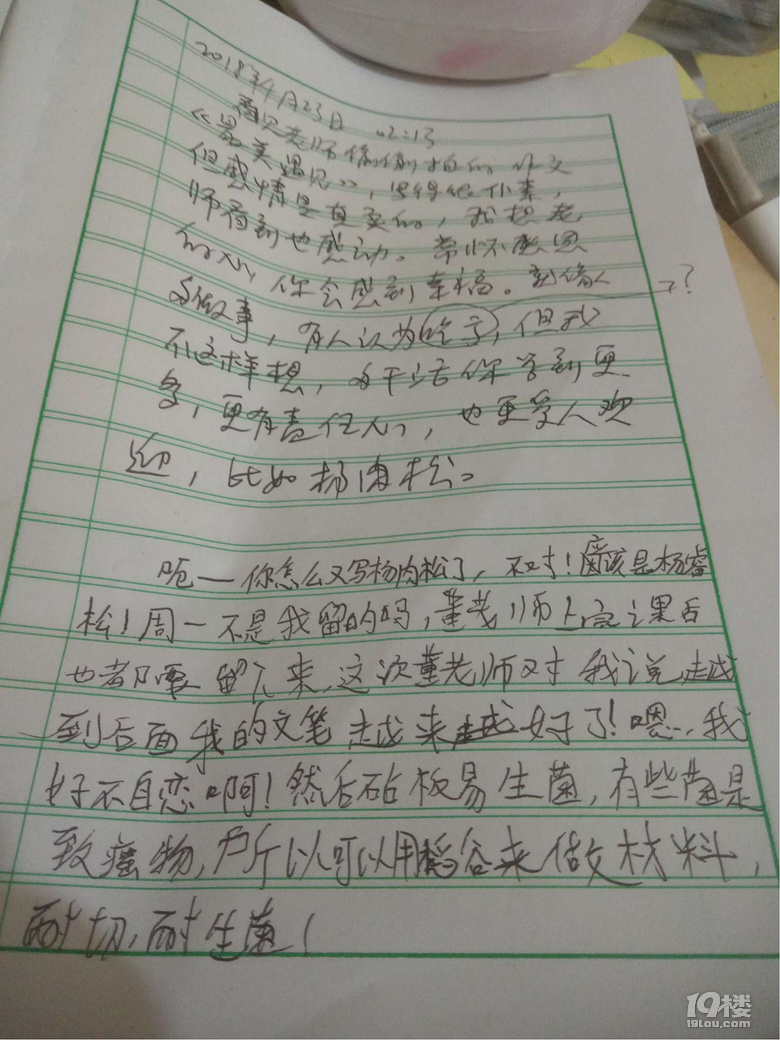 2018年4月23日 02:13
看见老师偷偷拍的作文
《最美遇见》，觉得很朴素，
但感情是真实的，我想老
师看到也感动。常怀感恩
的心，你会感到幸福。别人
做事，有人认为吃亏，但我
不这样想，多干活你学到更
多，更有责任心，也更受人欢
迎，比如杨肉松。
?
呃—你怎么又写杨肉松了，不对！应该是杨睿
松！周一不是我留的吗，董老师上完课后
也都要留下来，这次董老师对我说，越
到后面我的文笔越来越好了！嗯，我
好不自恋啊！然后砧板易生菌，有些菌是
致癌物，所以可以用稻谷来做材料，
耐切，耐生菌！
19楼
19lou.com